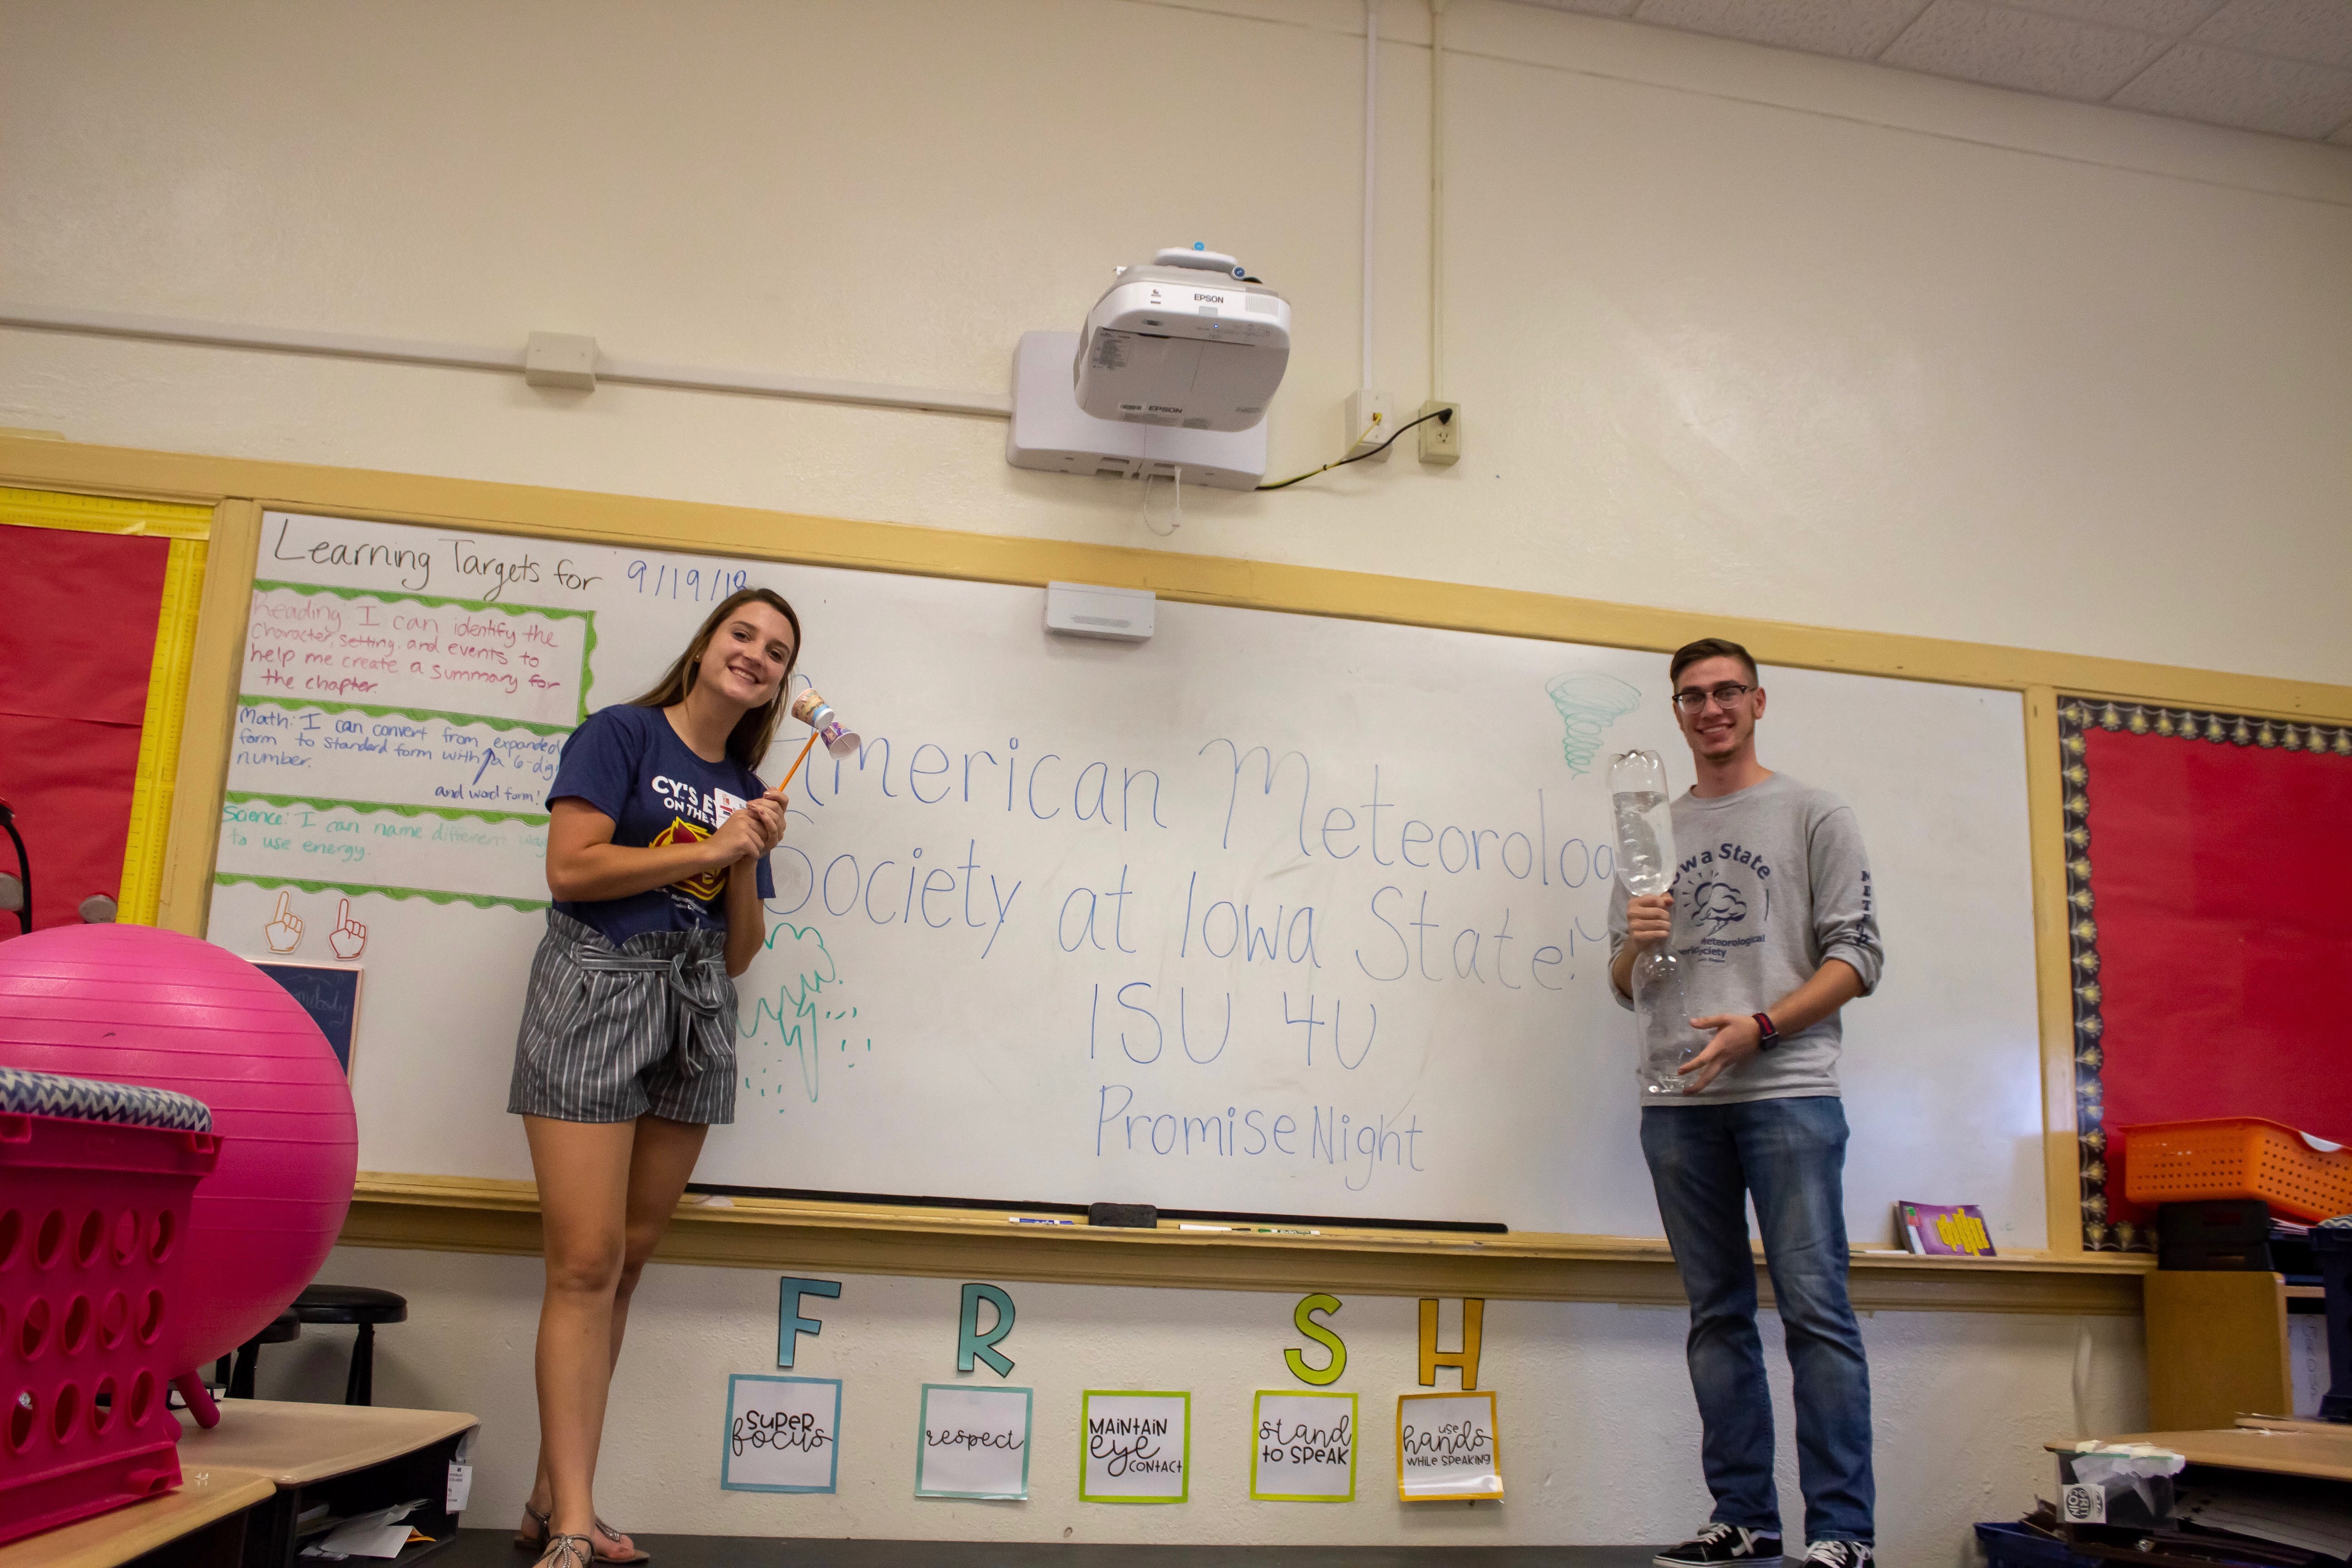 EPSON
EPSON
Learning Targets for 9/19/18
Reading: I can identify the
character, setting, and events to
help me create a summary for
the chapter.
Math: I can convert from expanded
form to standard form with a 6-dig
number.
and word form!
Science: I can name different way
to use energy.
American Meteorolog
Society at Iowa State!
ISU 4U
Promise Night
CY'S E
ON THE
Iowa State
Meteorological
Society
F R S H
SUPER
focus
respect
MAINTAIN
eye
CONTACT
stand
to SPEAK
use
hands
WHILE SPEAKING